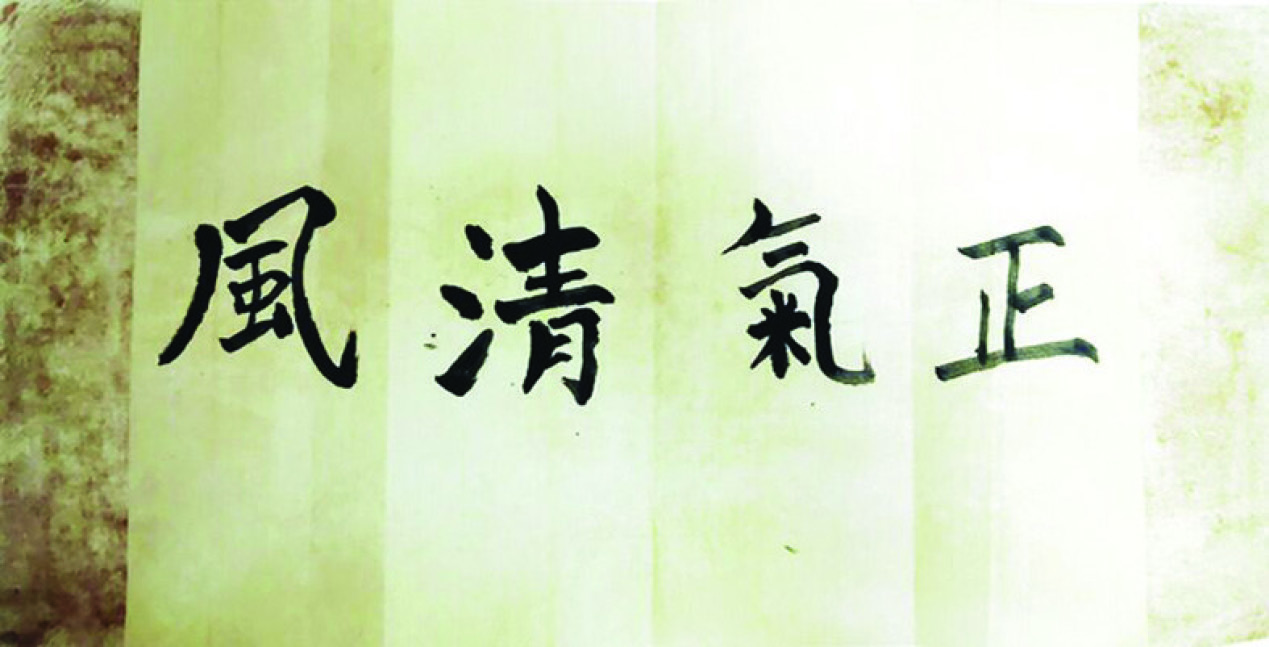 正氣清風